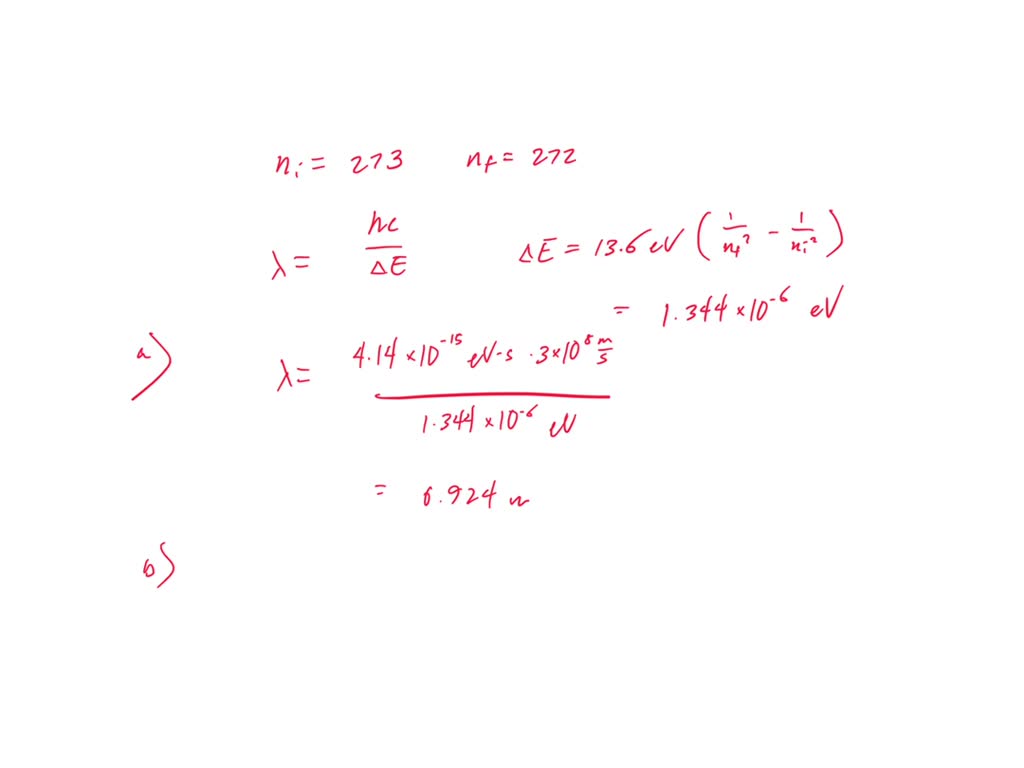 nᵢ = 273 n_f = 272
λ = hc/ΔE ΔE = 13.6 eV (1/n_f² − 1/nᵢ²)
= 1.344 × 10⁻⁶ eV
a) λ = 4.14 × 10⁻¹⁵ eV·s · 3 × 10⁸ m/s
1.344 × 10⁻⁶ eV
= 0.924 m
b)